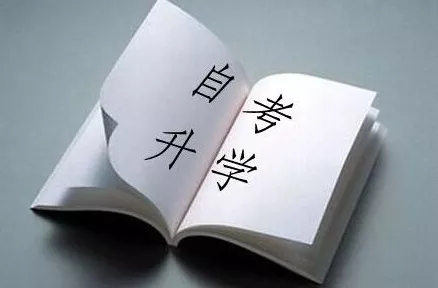 自考
升学